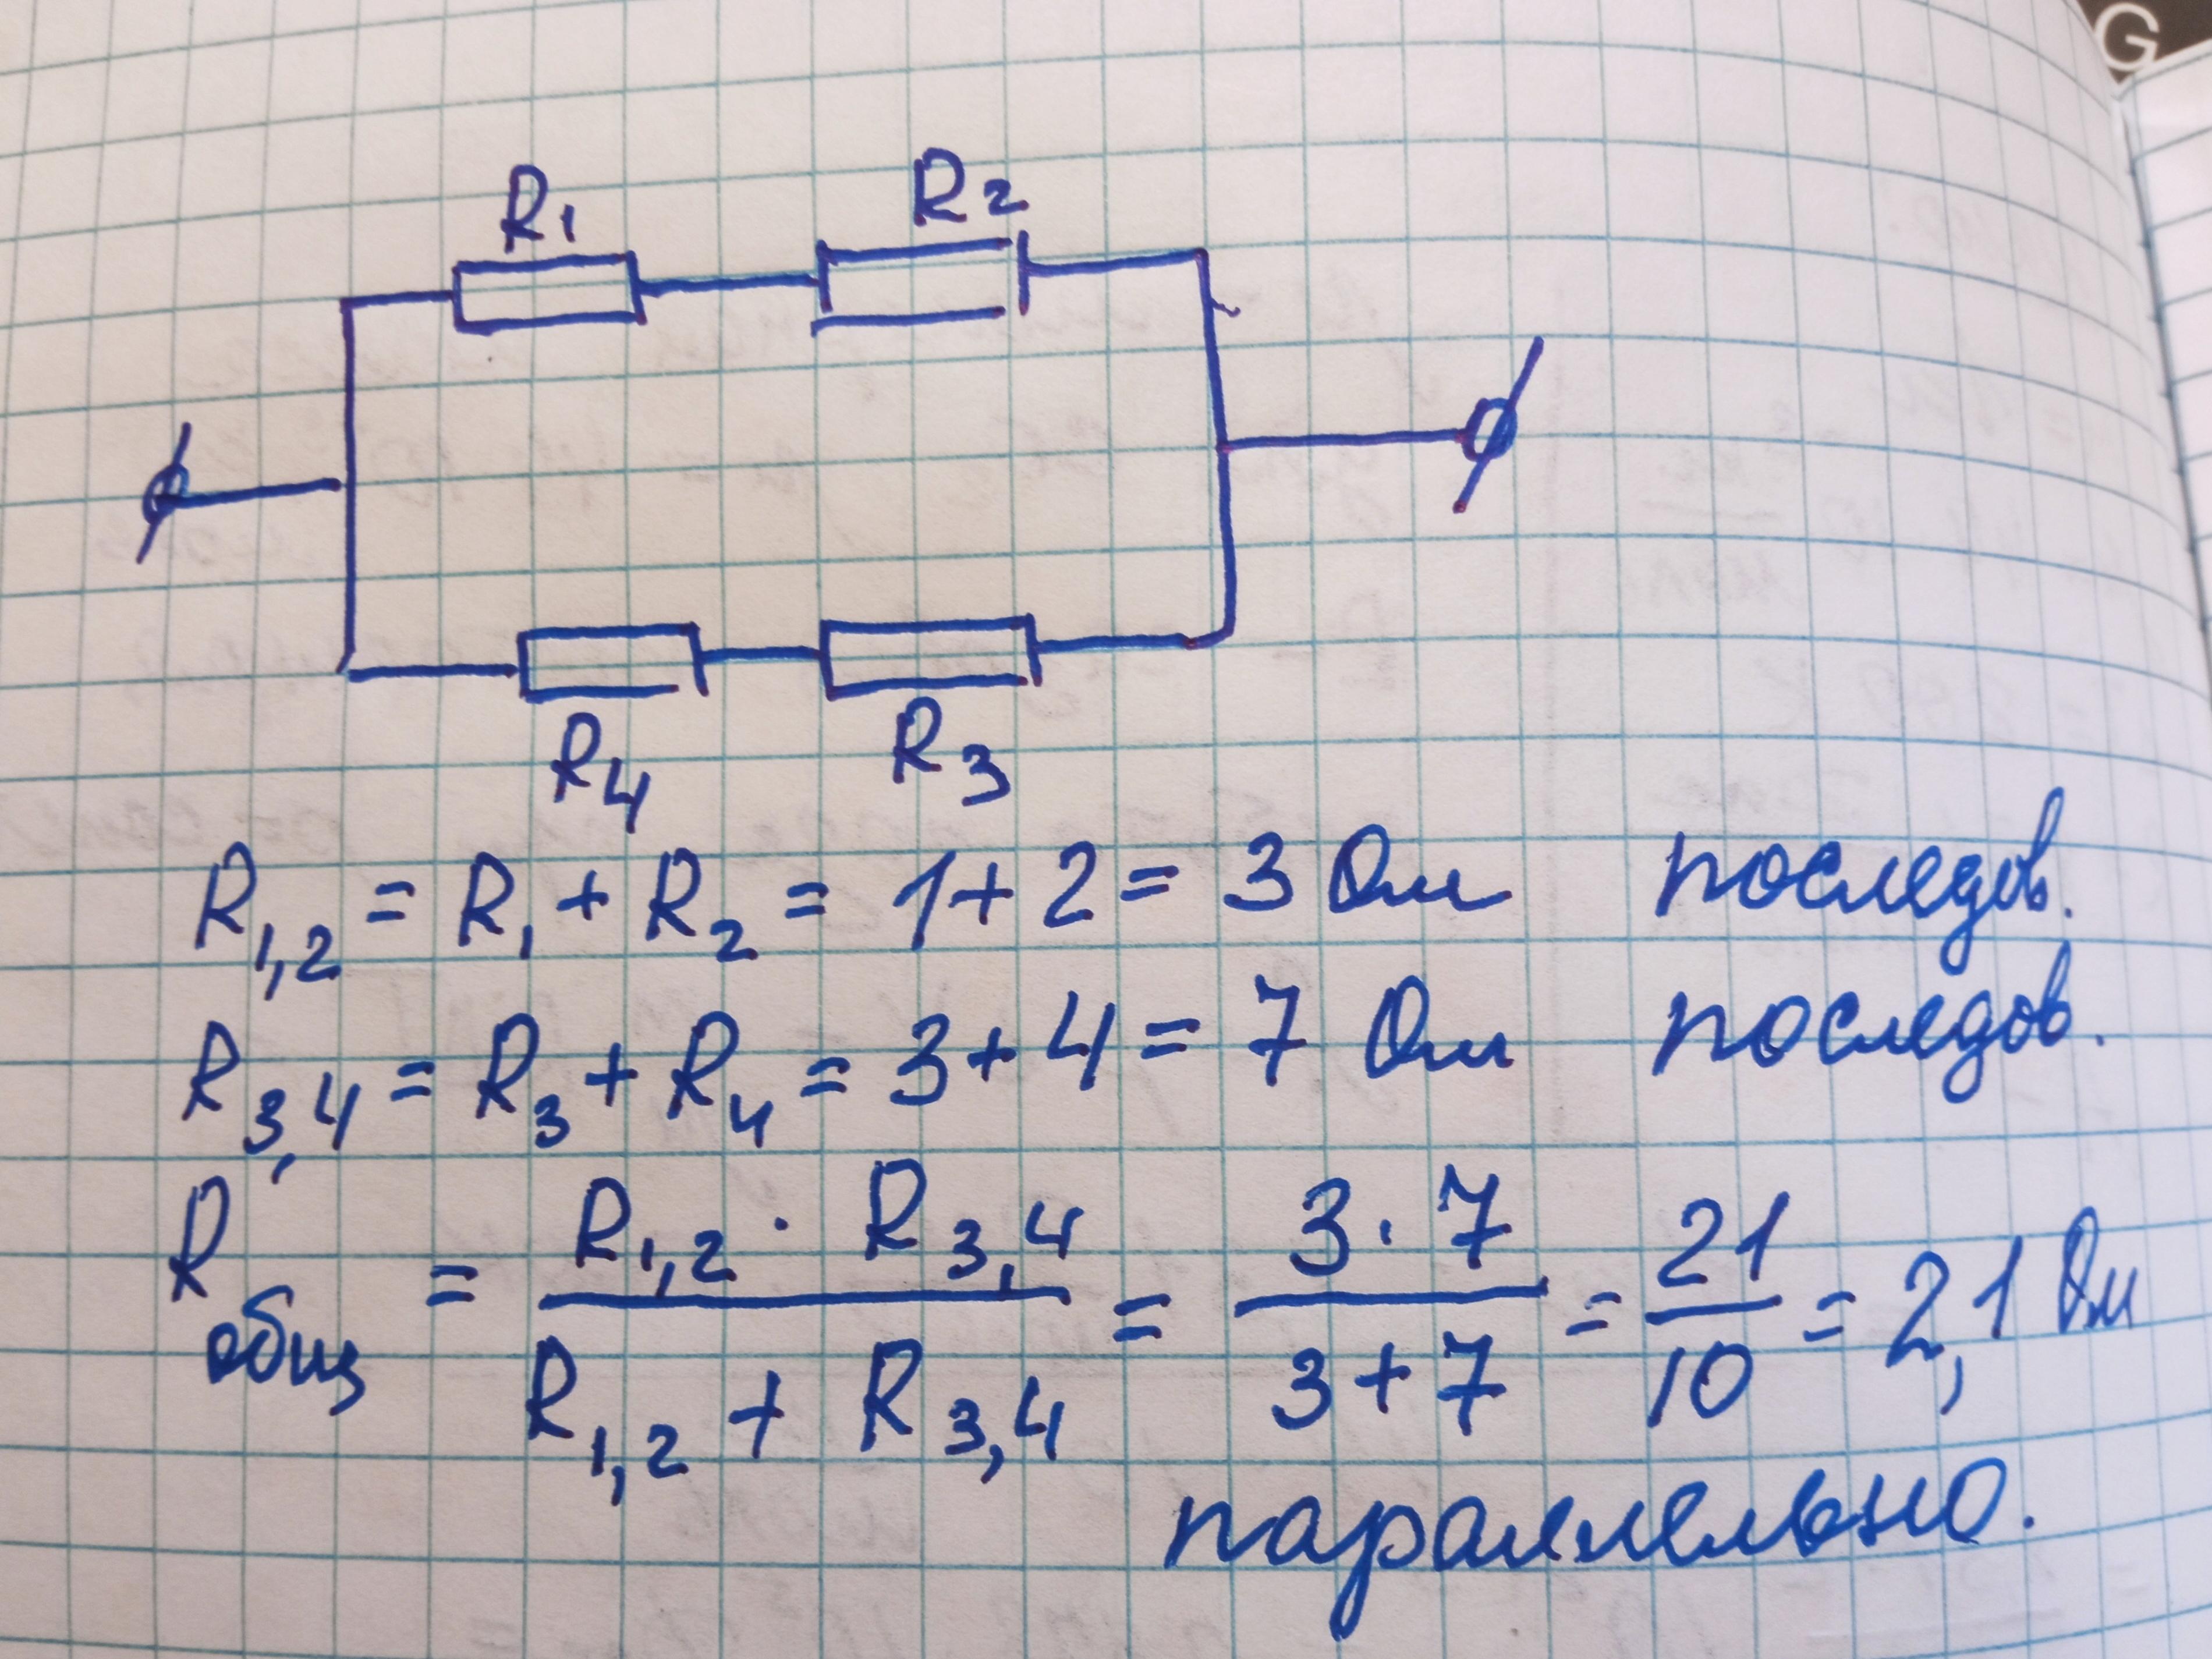 G
R1 R2
R4 R3
R1,2 = R1 + R2 = 1 + 2 = 3 Ом последов.
R3,4 = R3 + R4 = 3 + 4 = 7 Ом последов.
Rобщ = (R1,2 · R3,4) / (R1,2 + R3,4) = (3 · 7) / (3 + 7) = 21 / 10 = 2,1 Ом
параллельно.